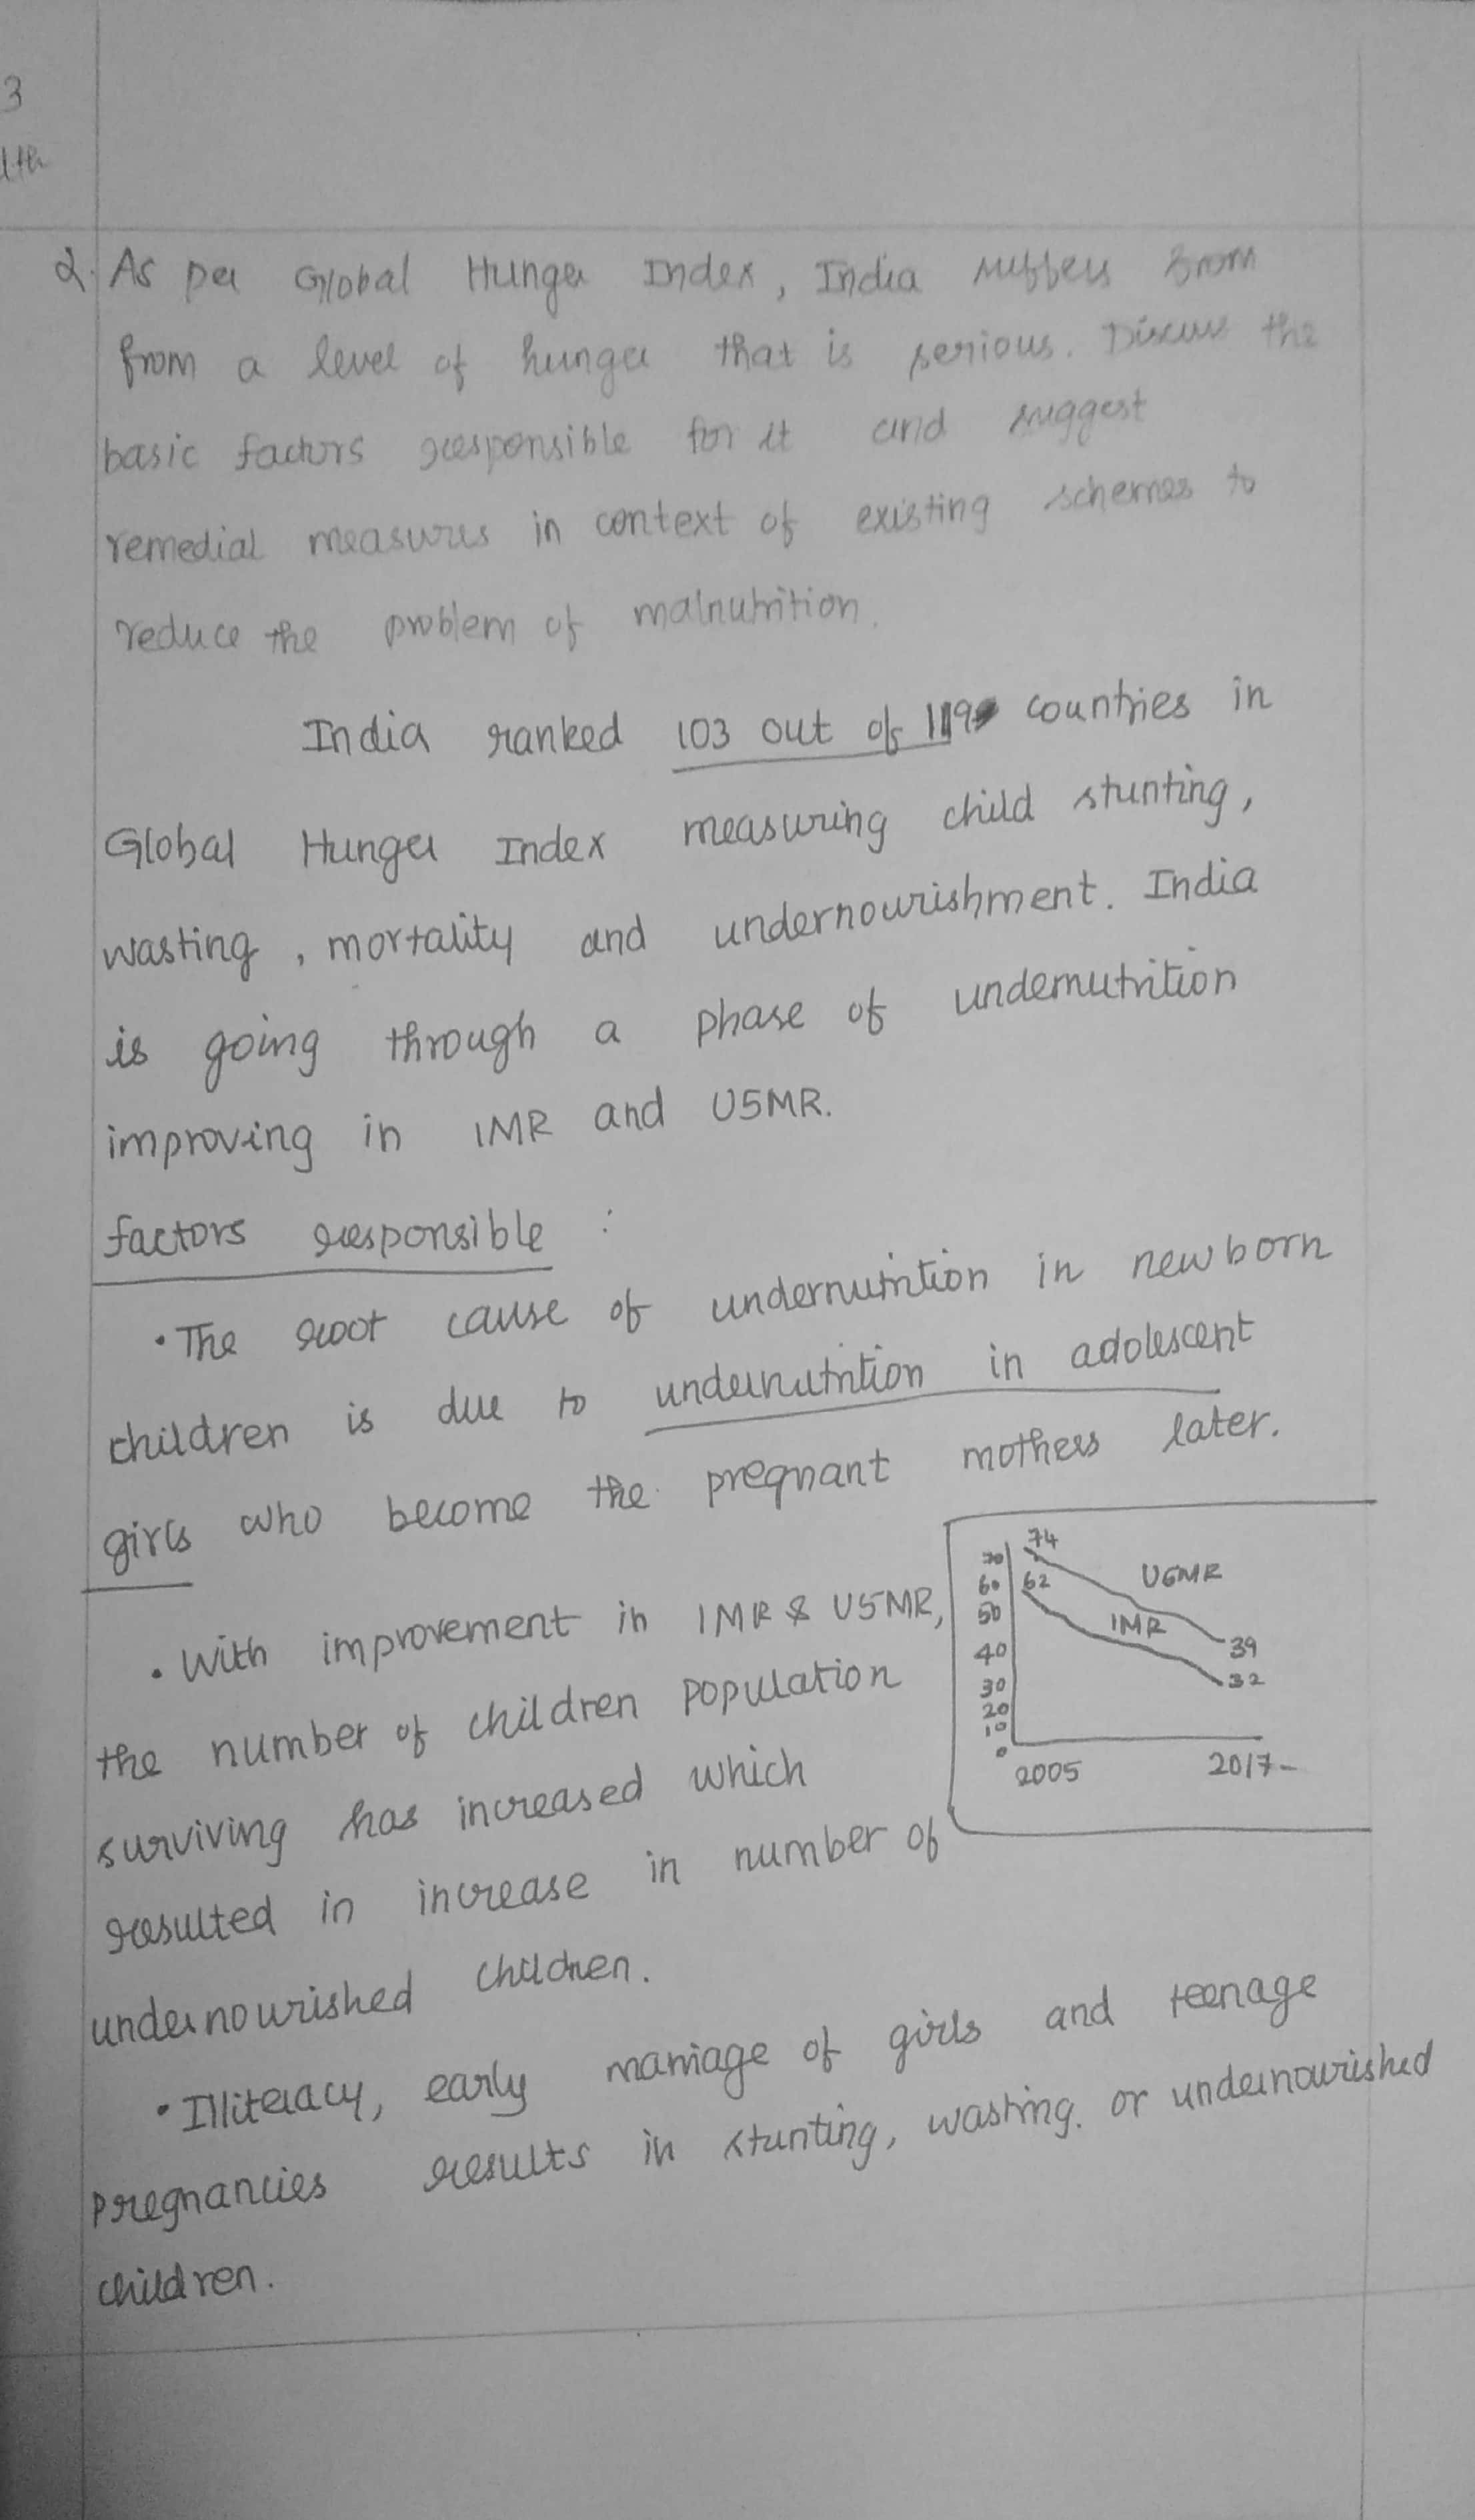 3
lth
2. As per Global Hunger Index, India suffers from
from a level of hunger that is serious. Discuss the
basic factors responsible for it and suggest
remedial measures in context of existing schemes to
reduce the problem of malnutrition.
India ranked 103 out of 119 countries in
Global Hunger Index measuring child stunting,
wasting, mortality and undernourishment. India
is going through a phase of undernutrition
improving in IMR and U5MR.
factors responsible :
• The root cause of undernutrition in newborn
children is due to undernutrition in adolescent
girls who become the pregnant mothers later.
• With improvement in IMR & U5MR,
the number of children population
surviving has increased which
resulted in increase in number of
undernourished children.
74
70
60 62 U5MR
50 IMR
40 39
30 32
20
10
0
2005 2017-
• Illiteracy, early marriage of girls and teenage
pregnancies results in stunting, wasting. or undernourished
children.